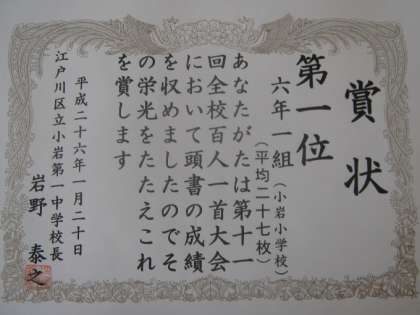 賞状
第一位
六年一組(小岩小学校)
(平均二十七枚)
あなたがたは第十一
回全校百人一首大会
において頭書の成績
を収めましたのでそ
の栄光をたたえこれ
を賞します
平成二十六年一月二十日
江戸川区立小岩第一中学校長
岩野泰之